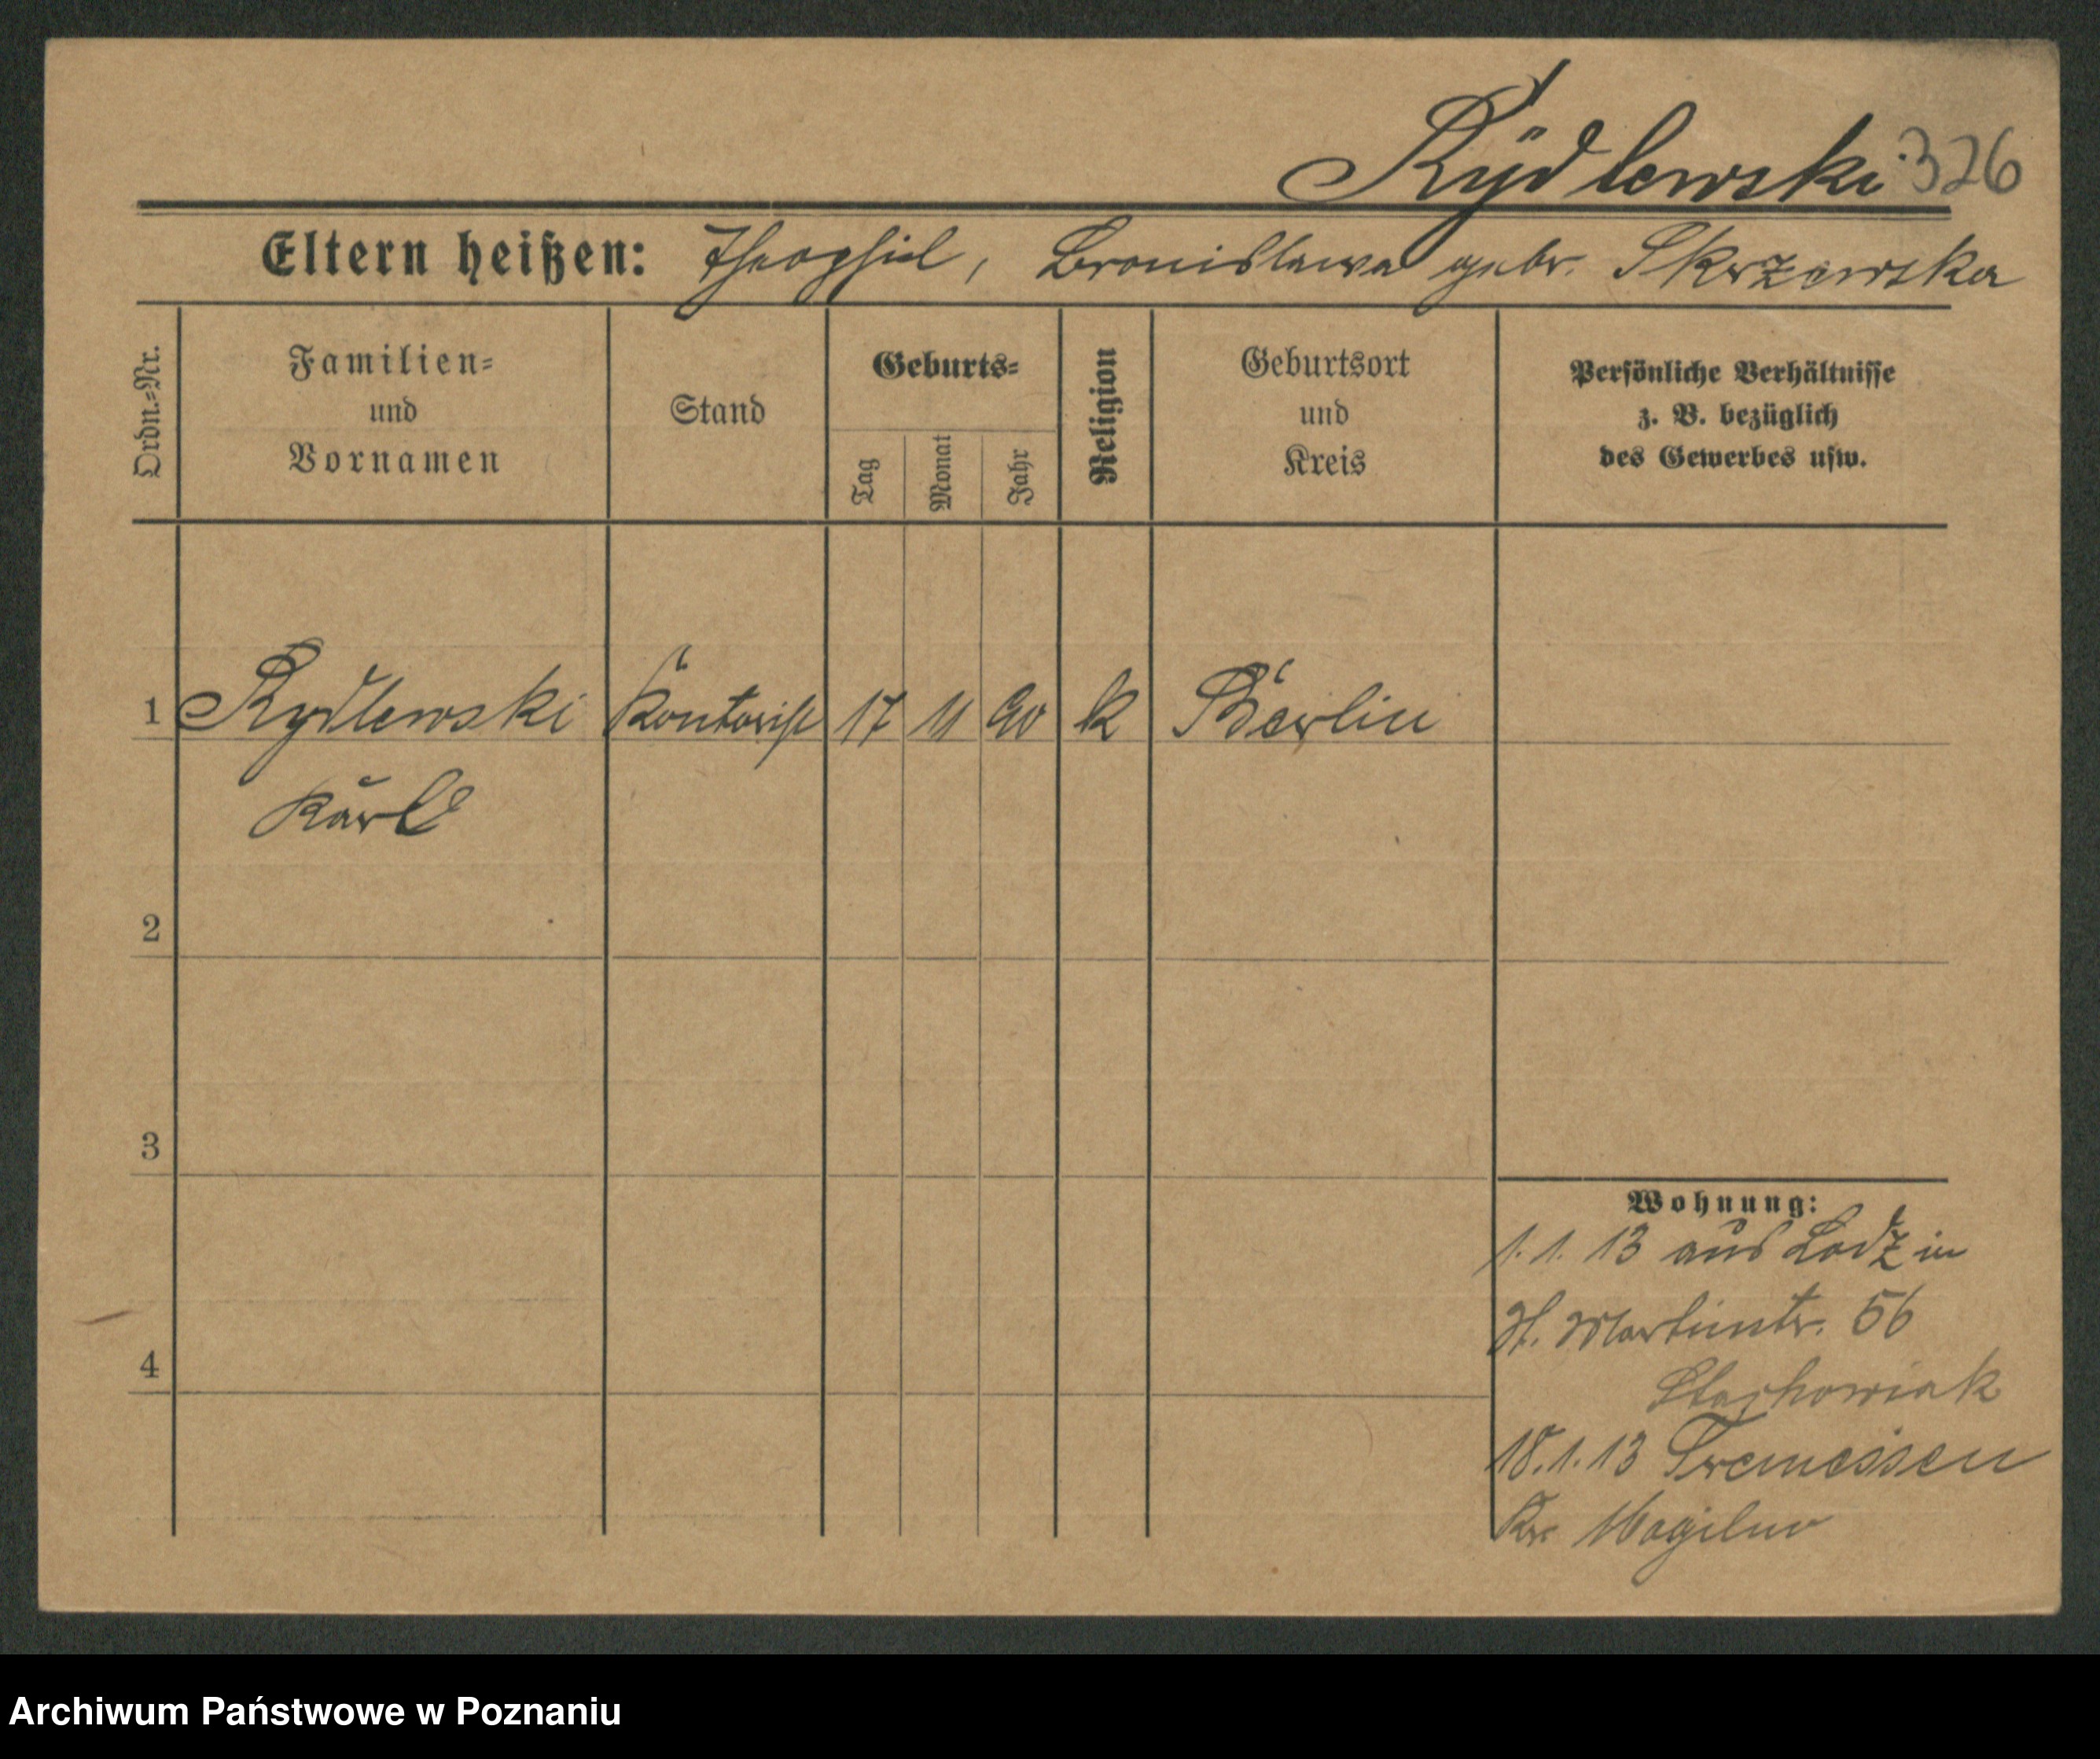 Rÿdlewski 326
Eltern heißen: Theophil, Bronislawa gebr. Skrzewska
Ordn.=Nr.
Familien=
und
Vornamen
Stand
Geburts=
Tag
Monat
Jahr
Religion
Geburtsort
und
Kreis
Persönliche Verhältnisse
z. B. bezüglich
des Gewerbes usw.
1 Rydlewski Kontorist 17 11 90 k Berlin
Karl
2
3
4
Wohnung:
1. 1. 13 aus Lodz in
St. Martinstr. 56
Stachowiak
18. 1. 13 Tremessen
Kr. Mogilno
Archiwum Państwowe w Poznaniu